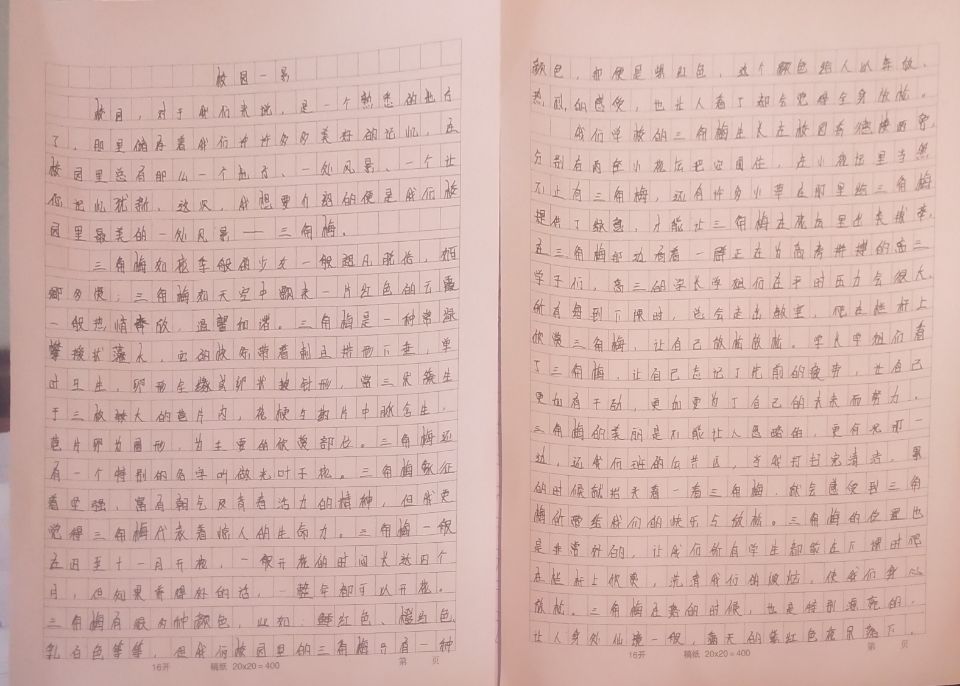 校园一景
校园，对于我们来说，是一个熟悉的地方
了，那里储存着我们许许多多美好的记忆，在
校园里总有那么一个地方、一处风景、一个让
你记忆犹新。这次，我想要介绍的便是我们校
园里最美的一处风景——三角梅。
三角梅如花季般的少女一般超凡脱俗，婀
娜多姿；三角梅如天空中飘来一片红色的云霞
一般热情奔放，温馨和谐。三角梅是一种常绿
攀援状藤木，它的枝条带着刺且拱形下垂，单
叶互生，卵形全缘或卵状披针形，常三朵簇生
于三枚较大的苞片内，花梗与苞片中脉合生，
苞片卵为圆形，为主要的欣赏部位。三角梅还
有一个特别的名字叫做光叶子花。三角梅象征
着坚强，富有朝气及青春活力的精神，但我更
觉得三角梅代表着惊人的生命力。三角梅一般
在四至十一月开花，一般开花的时间长达四个
月，但如果养得好的话，一整年都可以开花。
三角梅有很多种颜色，比如：鲜红色、橙黄色、
乳白色等等，但我们校园里的三角梅只有一种
16开
稿纸 20x20=400
第 页
颜色，那便是紫红色，这个颜色给人以奔放、
热烈的感觉，也让人看了都会觉得全身放松。
我们学校的三角梅生长在校园
分别有两座小花坛把它围住，在小花坛里当然
不止有三角梅，还有许多小草在那里给三角梅
提供了绿意，才能让三角梅在花坛里出类拔萃。
在三角梅那边有着一群正在为高考拼搏的高三
学子们，高三的学长学姐们在平时压力会很大，
所有每到下课时，总会走出教室，爬在栏杆上
欣赏三角梅，让自己放松放松。学长学姐们看
了三角梅，让自己忘记了先前的疲劳，让自己
更加有干劲，更加更为了自己的未来而努力。
三角梅的美丽是不能让人忽略的，更有尤那一
边，还我们班的公共区，当我打扫完清洁，累
的时候就抬头看一看三角梅，就会感觉到三角
梅所带给我们的快乐与放松。三角梅的位置也
是非常好的，让我们所有学生都能在下课时爬
在栏杆上欣赏，洗涤我们的眼睛，使我们身心
放松。三角梅在落的时候，也是特别漂亮的，
让人身处仙境一般，满天的紫红色夜尽落下。
16开
稿纸 20x20=400
第 页